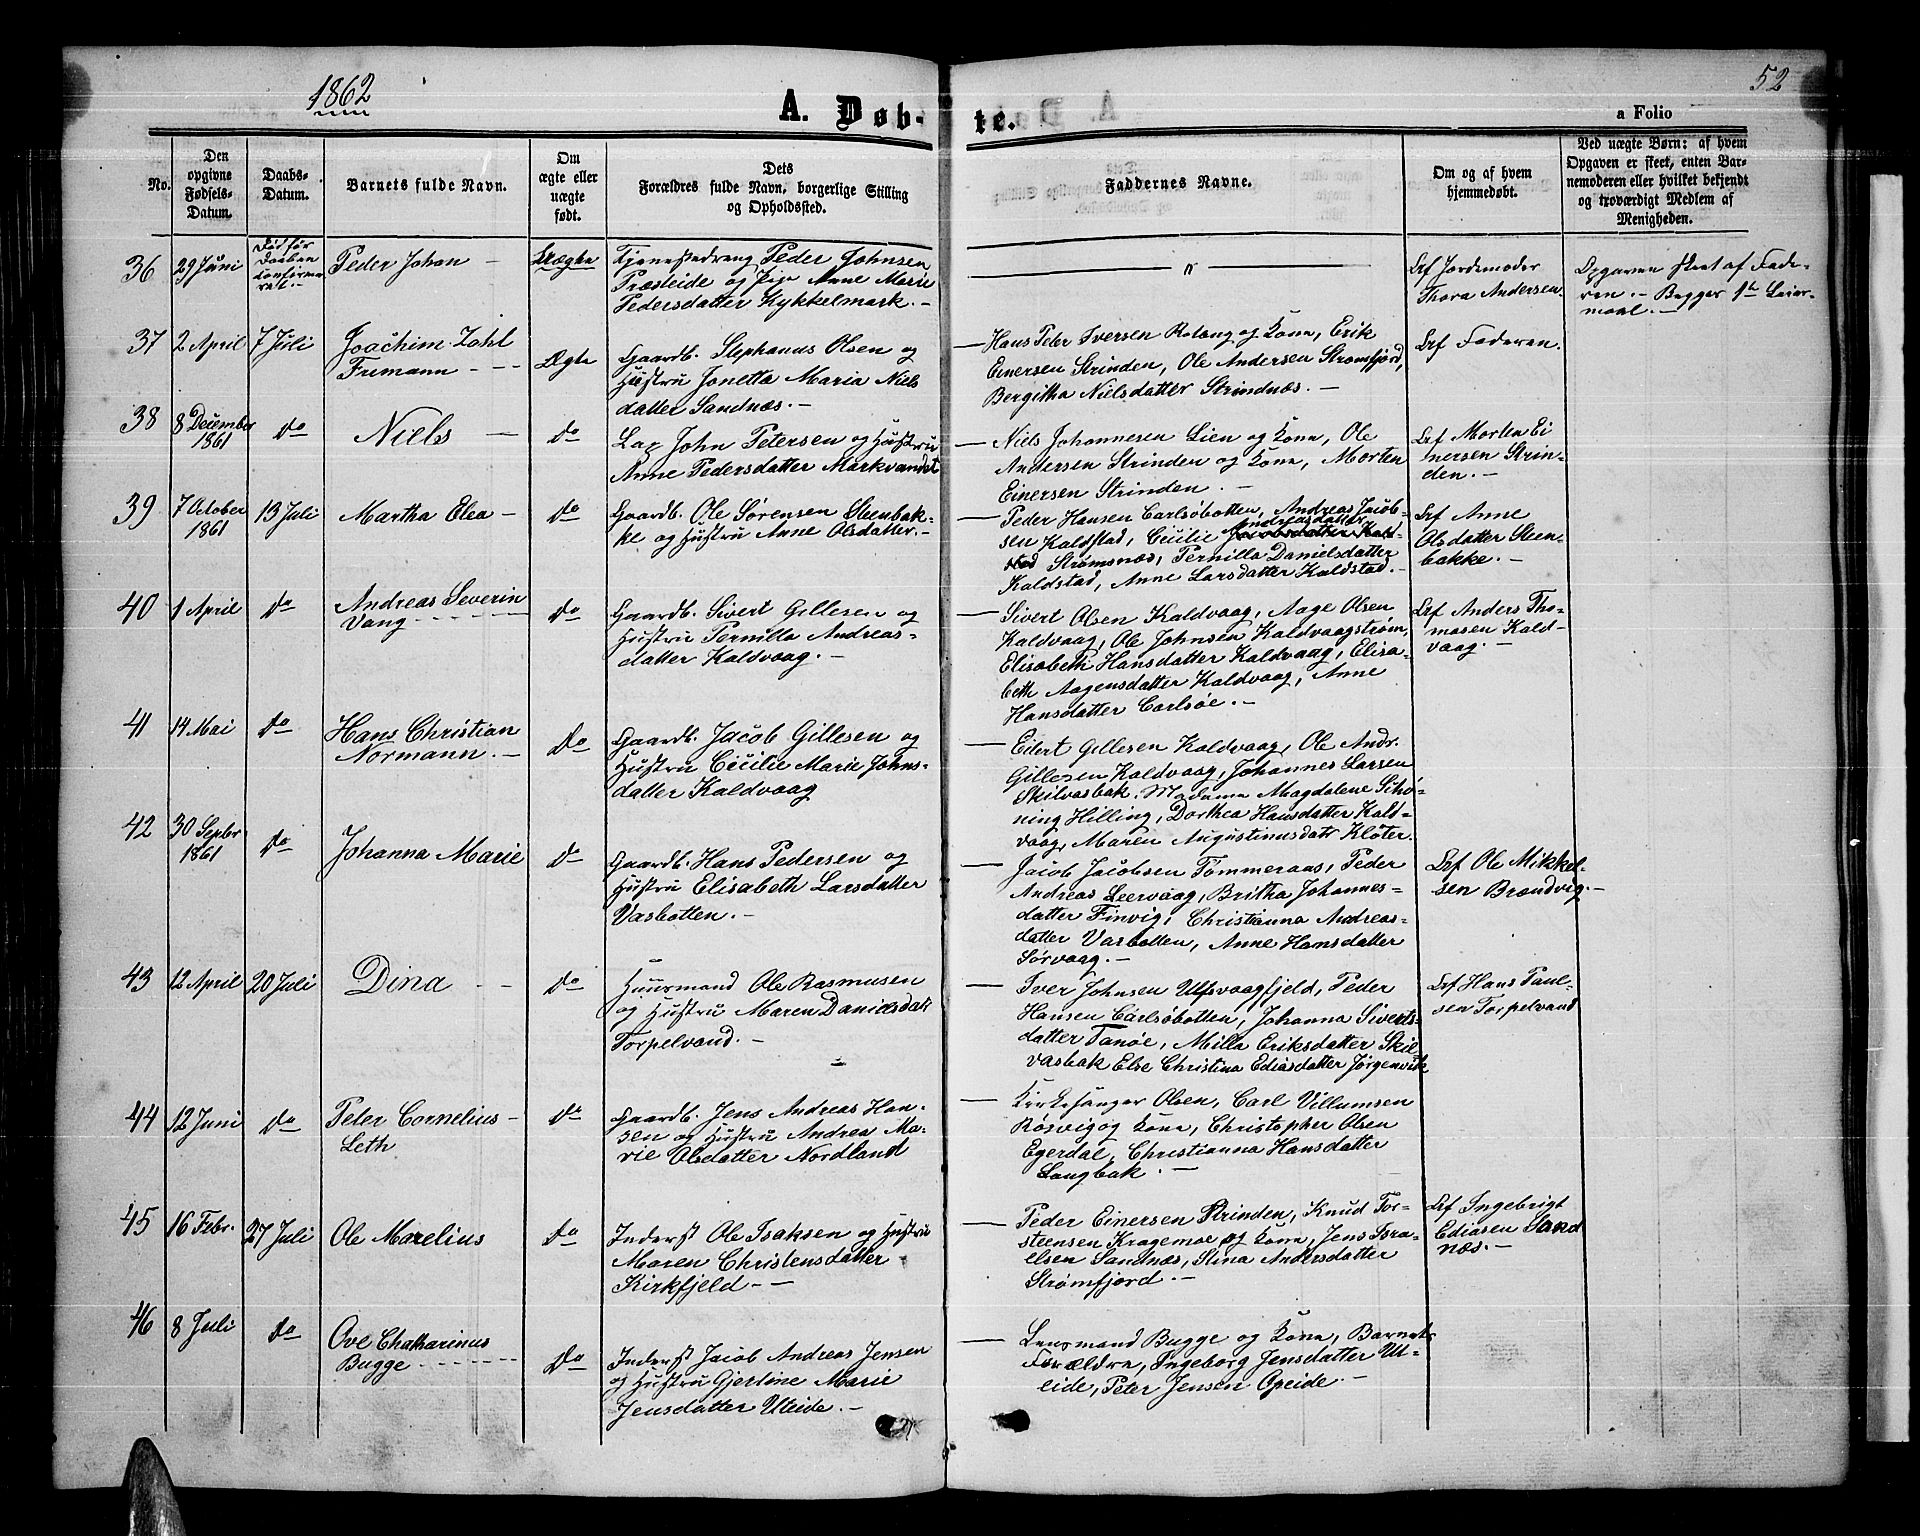 1862
52
A. Døb-
te.
a Folio
No.
Den
opgivne
Fødsels-
Datum.
Daabs-
Datum.
Barnets fulde Navn.
Om
ægte eller
uægte
født.
Dets
Forældres fulde Navn, borgerlige Stilling
og Opholdssted.
Faddernes Navne.
Om og af hvem
hjemmedøbt.
Ved uægte Børn: af hvem
Opgaven er skeet, enten Bar-
nemoderen eller hvilket bekjendt
og troværdigt Medlem af
Menigheden.
36
29 Juni
Død før
Daaben
Confirme-
ret.-
Peder Johan -
Uægte
Tjenestedreng Peder Johnsen
Præsteide og Pige Anne Marie
Pedersdatter Kykkelmark. -
"
af Jordemoder
Thora Andersen.
Opgaven skeet af Fade-
ren. - Begges 1te Leier-
maal. -
37
2 April
7 Juli
Joachim Zahl
Fremann - - -
Ægte
Gaardb. Stephanus Olsen og
Hustru Jonetta Maria Niels
datter Sandnæs. -
- Hans Peter Iversen Rotang og Kone, Erik
Einersen Strinden, Ole Andersen Strømfjord,
Bergitha Nielsdatter Strindnæs. -
af Faderen.
38
8 December
1861
Do
Niels -
Do
Lap John Petersen og Hustru
Anne Pedersdatter Markvandet
- Niels Johannesen Lien og Kone, Ole
Andersen Strinden og Kone, Morten
Einersen Strinden. -
af Morten Ei
nersen Strin-
den. -
39
7 October
1861
13 Juli
Martha Elea -
Do
Gaardb. Ole Sørensen Steenbak-
ke og Hustru Anne Olsdatter. -
- Peder Hansen Carlsøbotten, Andreas Jacob-
sen Kaldstad, Cecilie Jacobsdatter Kald-
Andreasdatter
stad Strømsnæs, Pernilla Danielsdatter
Kaldstad, Anne Larsdatter Kaldstad. -
af Anne
Olsdatter Steen-
bakke. -
40
1 April
Do
Andreas Severin
Vang - - - - - -
Do
Gaardb. Sivert Gillesen og
Hustru Pernilla Andreas-
datter Kaldvaag. -
- Sivert Olsen Kaldvaag, Aage Olsen
Kaldvaag, Ole Johnsen Kaldvaagstrøm,
Elisabeth Hansdatter Kaldvaag, Elisa-
beth Aagensdatter Kaldvaag, Anne
Hansdatter Carlsøe. -
af Anders Tho-
masen Kald-
vaag. -
41
14 Mai
Do
Hans Christian
Normann. -
Do
Gaardb. Jacob Gillesen og
Hustru Cecilie Marie Johns-
datter Kaldvaag
- Eilert Gillesen Kaldvaag, Ole Andr.
Gillesen Kaldvaag, Johannes Larsen
Skilvasbak. Madame Magdalene Schø-
ning Hilling, Dorthea Hansdatter Kald-
vaag, Maren Augustinusdatr Kløter.
42
30 Septbr
1861
Do
Johanna Marie
Do
Gaardb. Hans Pedersen og
Hustru Elisabeth Larsdatter
Vasbotten. -
- Jacob Jacobsen Tømmeraas, Peder
Andreas Leervaag, Britha Johannes-
datter Finvig, Christianna Andreas-
datter Vasbotten, Anne Hansdatter
Sørvaag. -
af Ole Mikkel-
sen Brandvig. -
43
12 April
20 Juli
Dina - -
Do
Huusmand Ole Rasmusen
og Hustru Maren Danielsdatr
Torpelvand. -
- Iver Johnsen Ulfsvaagfjeld, Peder
Hansen Carlsøbotten, Johanna Siverts-
datter Tanøe, Milla Eriksdatter Skil
vasbak Else Christina Ediasdatter Jørgenvik
af Hans Paul-
sen Torpelvand
44
12 Juni
Do
Peter Cornelius -
Leth
Do
Gaardb. Jens Andreas Han-
sen og Hustru Andrea Ma-
rie Olsdatter Nordland
- Kirkesanger Olsen, Carl Villumsen
Røsvig og Kone, Christopher Olsen
Egerdal, Christianna Hansdatter
Langbak. -
45
16 Febr.
27 Juli
Ole Marelius
Do
Inderst Ole Isaksen og Hustru
Maren Christensdatter
Kirkfjeld - -
- Peder Einersen Strinden, Knud Tor-
steensen Kragemoe og Kone, Jens Isra-
elsen Sandnæs, Stina Andersdatter
Strømfjord. -
af Ingebrigt
Ediasen Sand
næs. -
46
8 Juli
Do
Ove Chatharinus
Bugge - - - - - -
Do
Inderst Jacob Andreas Jensen
og Hustru Gjertine Marie
Jensdatter Uteide. -
- Lensmand Bugge og Kone, Barnets
Forældre, Ingeborg Jensdatter Ut-
eide, Peter Jensen Opeide. -